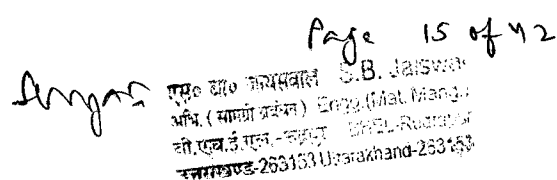 Page 15 of 42
एस० बी० जायसवाल S.B. Jaiswal
अभि. (सामग्री प्रबंधन) Engg.(Mat. Mang.)
बी.एच.ई.एल.-रूद्रपुर BHEL-Rudrapur
उत्तराखण्ड-263153 Uttarakhand-263153